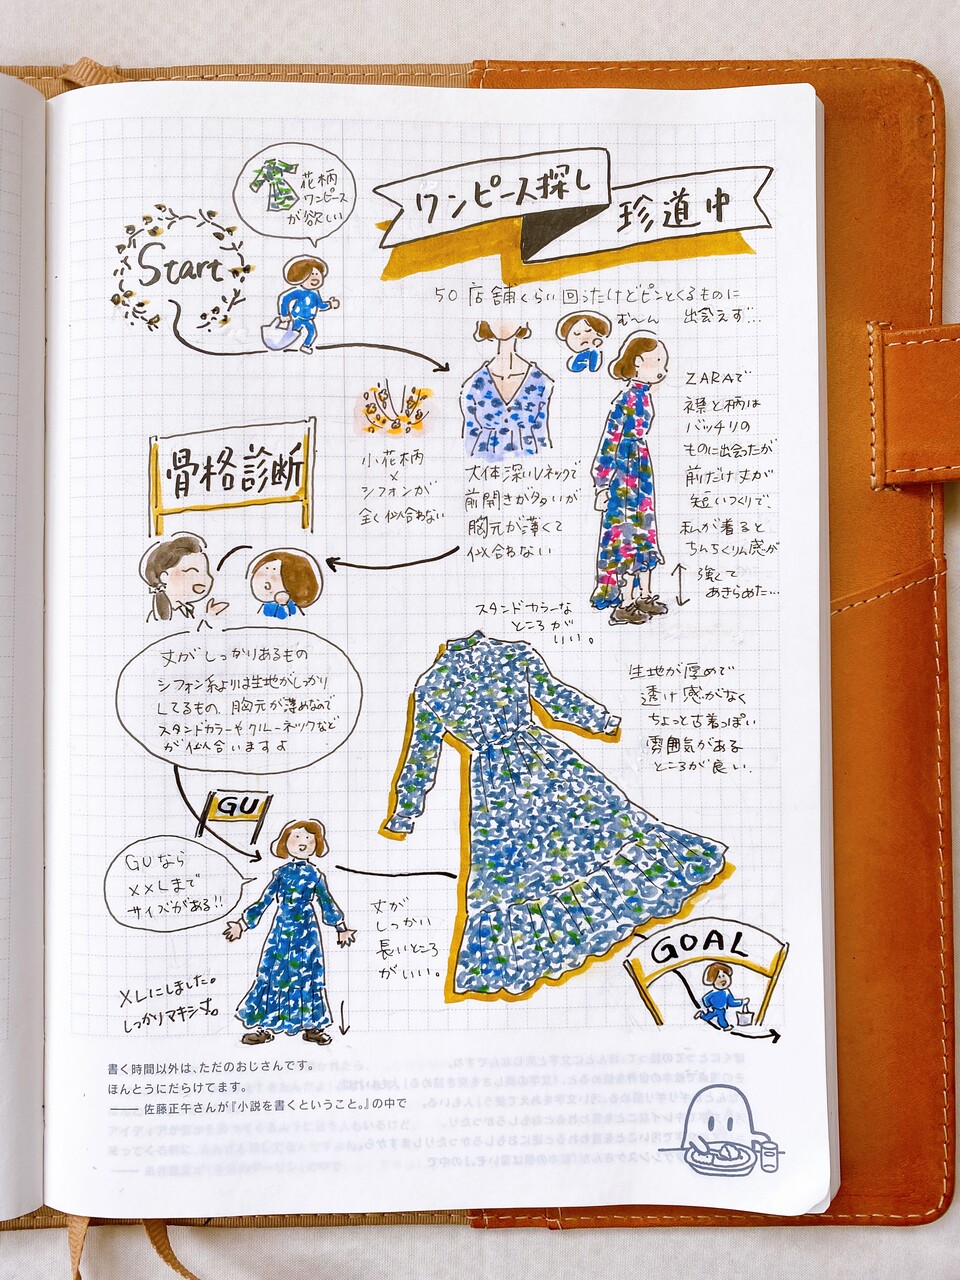 ワンピース探し
珍道中
Start
花柄
ワンピース
が欲しい
50店舗くらい回ったけどピンとくるものに
出会えず…
む〜ん
小花柄
×
シフォンが
全く似合わない
大体深いVネックで
前開きが多いが
胸元が薄くて
似合わない
ZARAで
襟と柄は
バッチリの
ものに出会ったが
前だけ丈が
短いつくりで、
私が着ると
ちんちくりん感が
強くて
あきらめた…
骨格診断
丈がしっかりあるもの
シフォン系よりは生地がしっかり
してるもの、胸元が薄めなので
スタンドカラーやクルーネックなど
が似合いますよ
GU
GUなら
XXLまで
サイズがある!!
XLにしました。
しっかりマキシ丈。
スタンドカラーな
ところが
いい。
生地が厚めで
透け感がなく
ちょっと古着っぽい
雰囲気がある
ところが良い。
丈が
しっかり
長いところ
がいい。
GOAL
書く時間以外は、ただのおじさんです。
ほんとうにだらけてます。
―― 佐藤正午さんが『小説を書くということ。』の中で